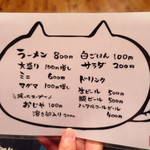 ラーメン 800円
大盛り 100円増し
ミニ 600円
マゲマ 100円増し
おじや 100円
溶き卵入り 200円
白ごはん 100円
サラダ 200円
ドリンク
生ビール 500円
瓶ビール 500円
ノンアルコールビール
400円